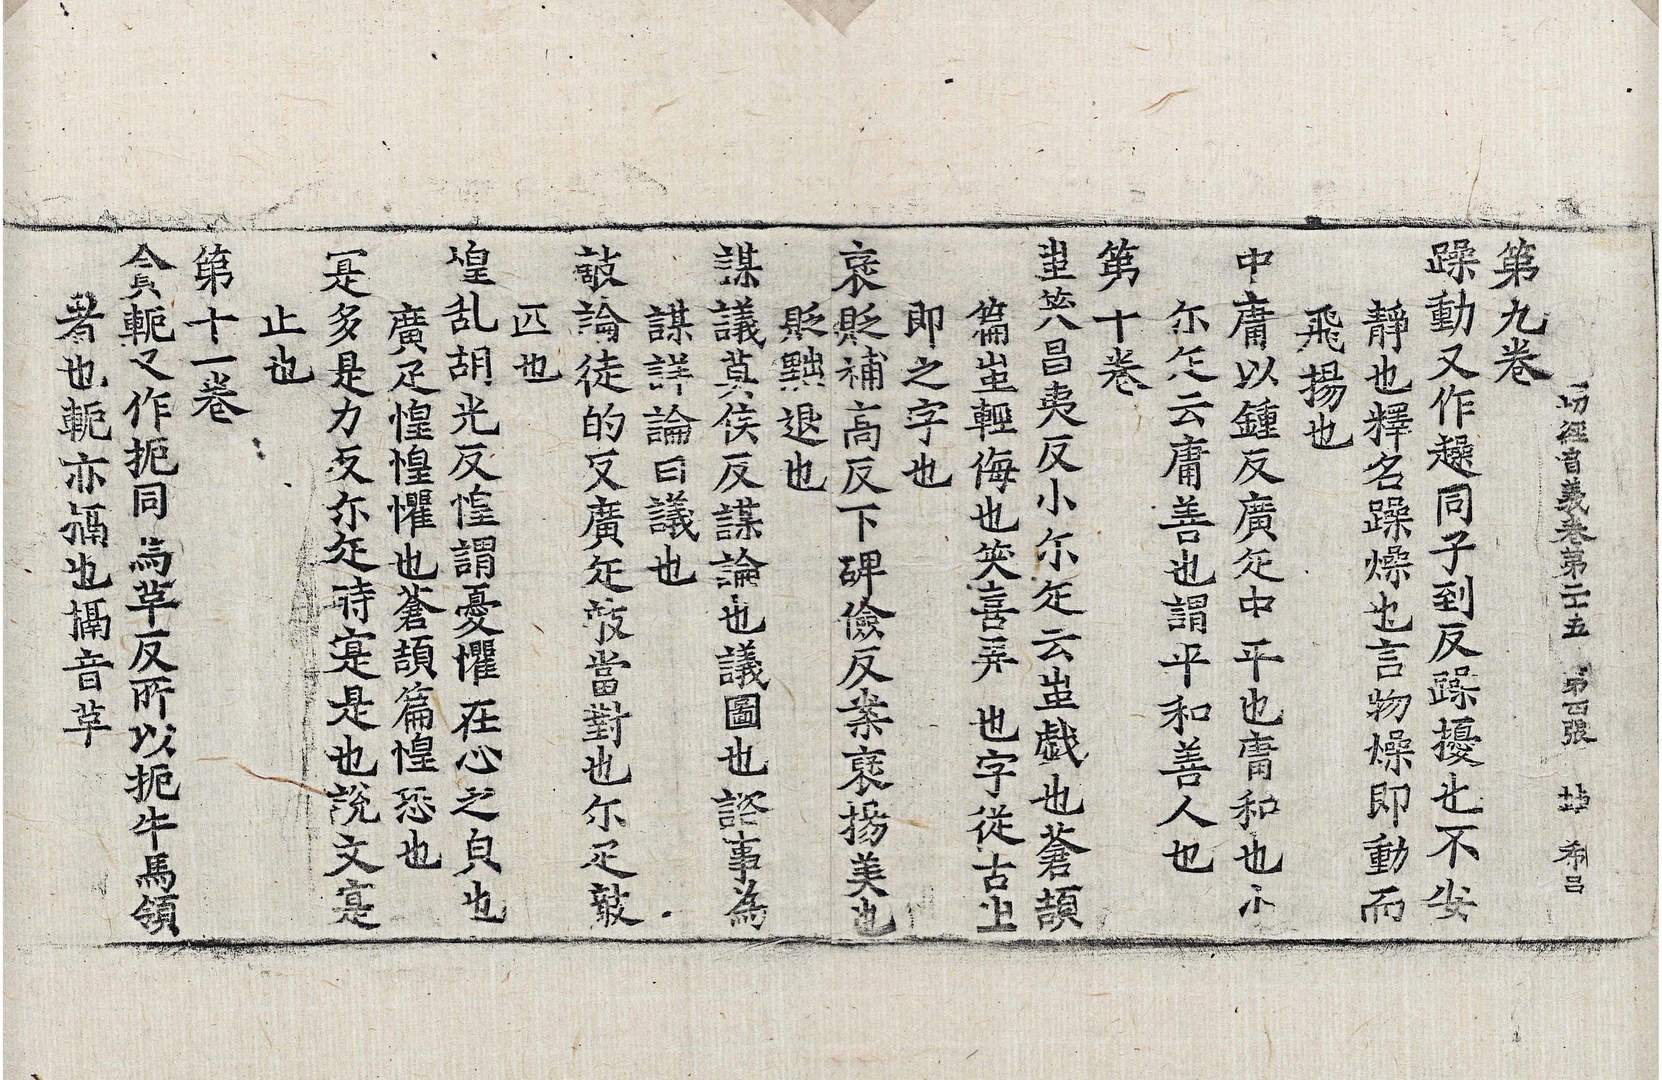 切經音義卷第二十五 第四張 㘽 希呂
第九卷
躁動又作趮同子到反躁擾也不安
靜也釋名躁燥也言物燥即動而
飛揚也
中庸以鍾反廣疋中平也庸和也小
尒疋云庸善也謂平和善人也
第十卷
蚩笑昌夷反小尒疋云蚩戱也蒼頡
篇蚩輕侮也笑喜弄也字從古㞢
即之字也
褒貶補高反下碑儉反案褒揚美也
貶黜退也
謀議莫侯反謀論也議圖也諮事為
謀詳論曰議也
敵論徒的反廣疋敵當對也尒疋敵
匹也
惶乱胡光反惶謂憂懼在心之皃也
廣疋惶惶懼也蒼頡篇惶恐也
寔多是力反尒疋時寔是也說文寔
止也
第十一卷
貪軛又作扼同為革反所以扼牛馬領
者也軛亦㮯也㮯音革